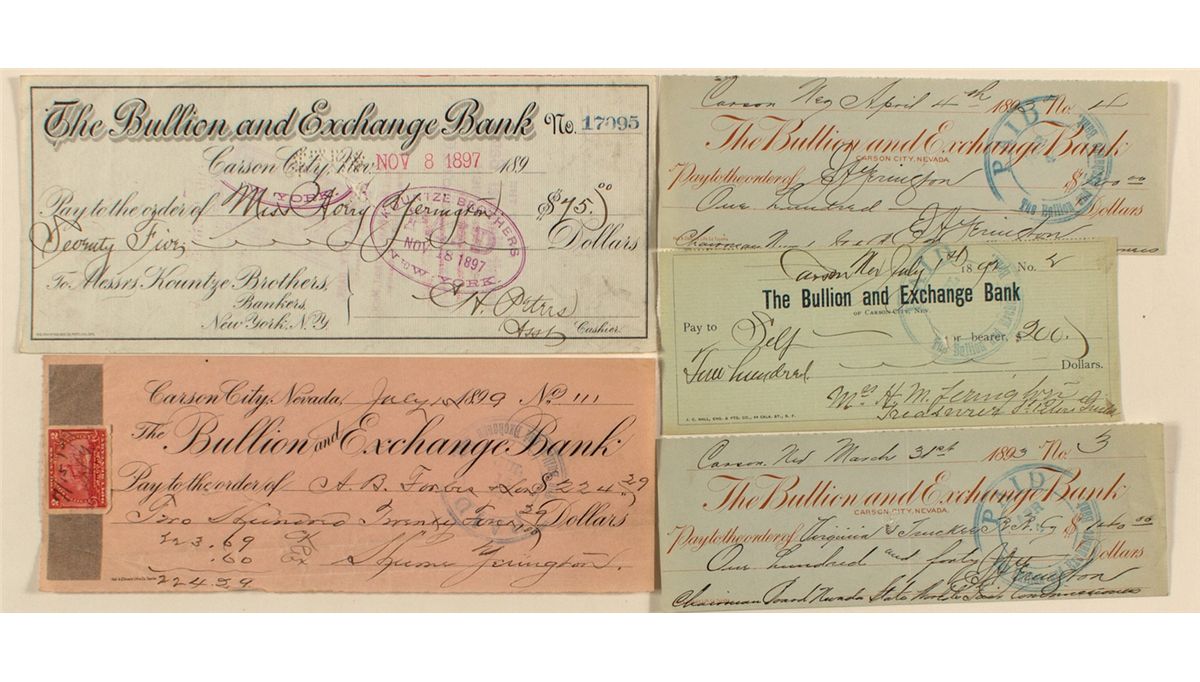 The Bullion and Exchange Bank No. 17095
Carson City, Nev. NOV 8 1897 189
Pay to the order of Miss Yerington $75.00
Seventy Five Dollars
To Messrs Kountze Brothers,
Bankers,
New York, N.Y.
KOUNTZE BROTHERS
PAID
NOV 18 1897
NEW YORK.
YORK.
Peters
Asst Cashier.
Carson City, Nevada, July 1899 No. 111
The Bullion and Exchange Bank
Pay to the order of A. B. Forbes & Son $224.29
Two Hundred Twenty Four 29 Dollars
223.69
.60 Ex
224.29
Yerington.
Carson Nev April 4th 1893 No. 4
The Bullion and Exchange Bank
CARSON CITY, NEVADA.
Pay to the order of Yerington $100.00
One hundred Dollars
Yerington
Chairman
PAID
The Bullion
Carson Nev July 1892 No. 2
The Bullion and Exchange Bank
OF CARSON CITY, NEV.
Pay to Self or bearer, $200
Two hundred Dollars.
Mrs H. M. Yerington
Treasurer St Peters Guild
Carson Nev March 31st 1893 No. 3
The Bullion and Exchange Bank
CARSON CITY, NEVADA.
Pay to the order of Virginia & Truckee R. R. Co $140.00
One hundred and forty Dollars
Yerington
Chairman Board Nevada State World's Fair Commissioners
PAID